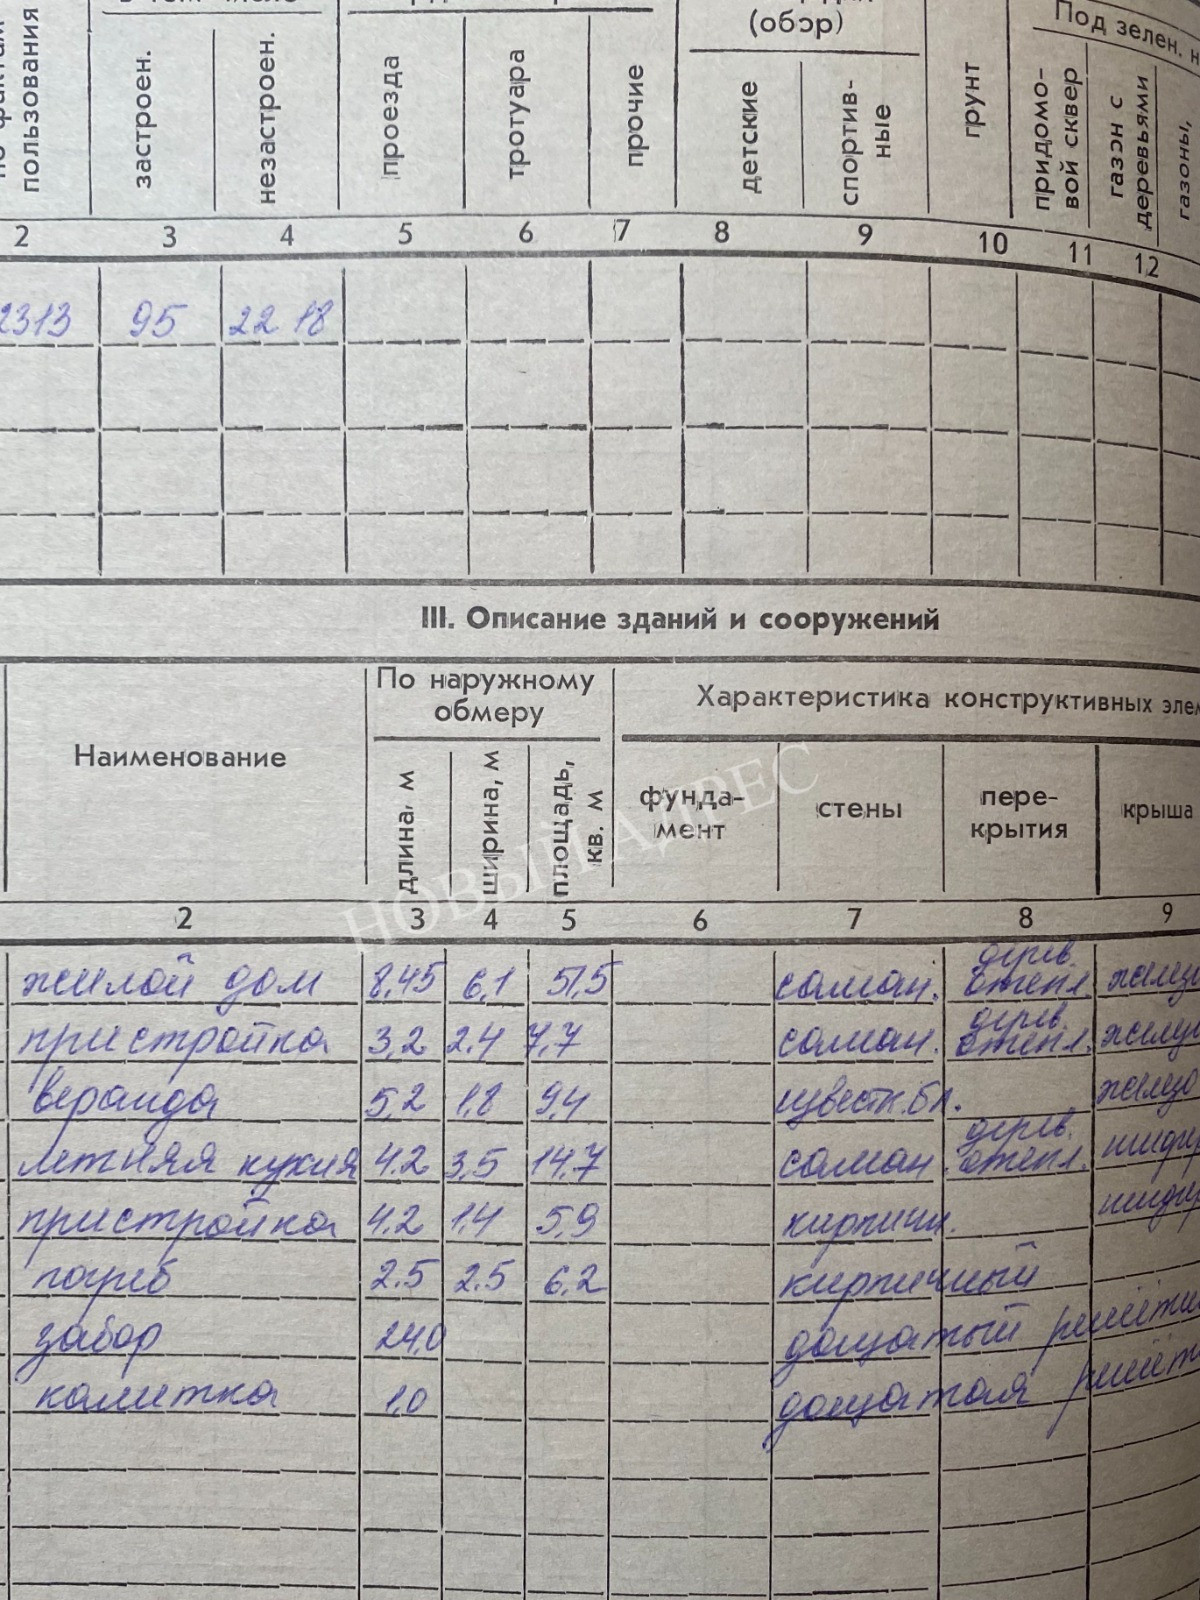 (обэр)
Под зелен. н
пользования
застроен.
незастроен.
проезда
тротуара
прочие
детские
спортив-
ные
грунт
придомо-
вой сквер
газон с
деревьями
газоны,
2 3 4 5 6 7 8 9 10 11 12
2313 95 2218
III. Описание зданий и сооружений
Наименование
По наружному
обмеру
Характеристика конструктивных элем
длина, м
ширина, м
площадь,
кв. м
фунда-
мент
стены
пере-
крытия
крыша
2 3 4 5 6 7 8 9
жилой дом 8,45 6,1 51,5 саман. дерев. отепл. железо
пристройка 3,2 2.4 7,7 саман. дерев. отепл.
веранда 5,2 1,8 9,4 известк. бл. железо
летняя кухня 4.2 3,5 14,7 саман. дерев. отепл.
пристройка 4.2 1,4 5,9 кирпичн.
погреб 2.5 2.5 6,2 кирпичный
забор 24,0 дощатый
калитка 1,0 дощатая
НОВЫЙ АДРЕС